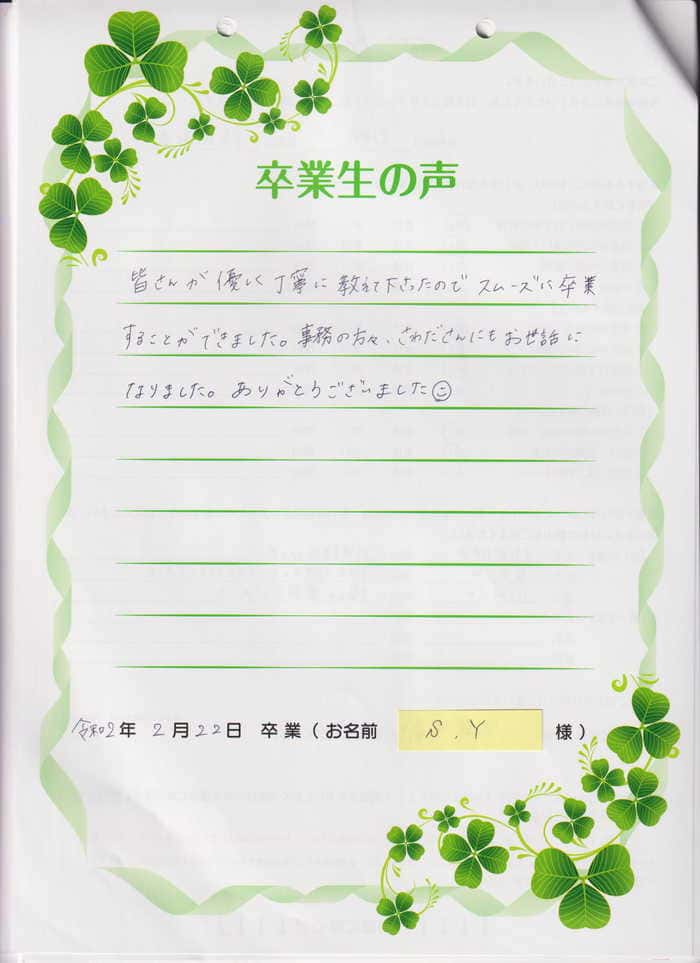 卒業生の声
皆さんが優しく丁寧に教えて下さったのでスムーズに卒業
することができました。事務の方々、さわださんにもお世話に
なりました。ありがとうございました☺
令和2年 2月22日 卒業(お名前 S.Y 様)